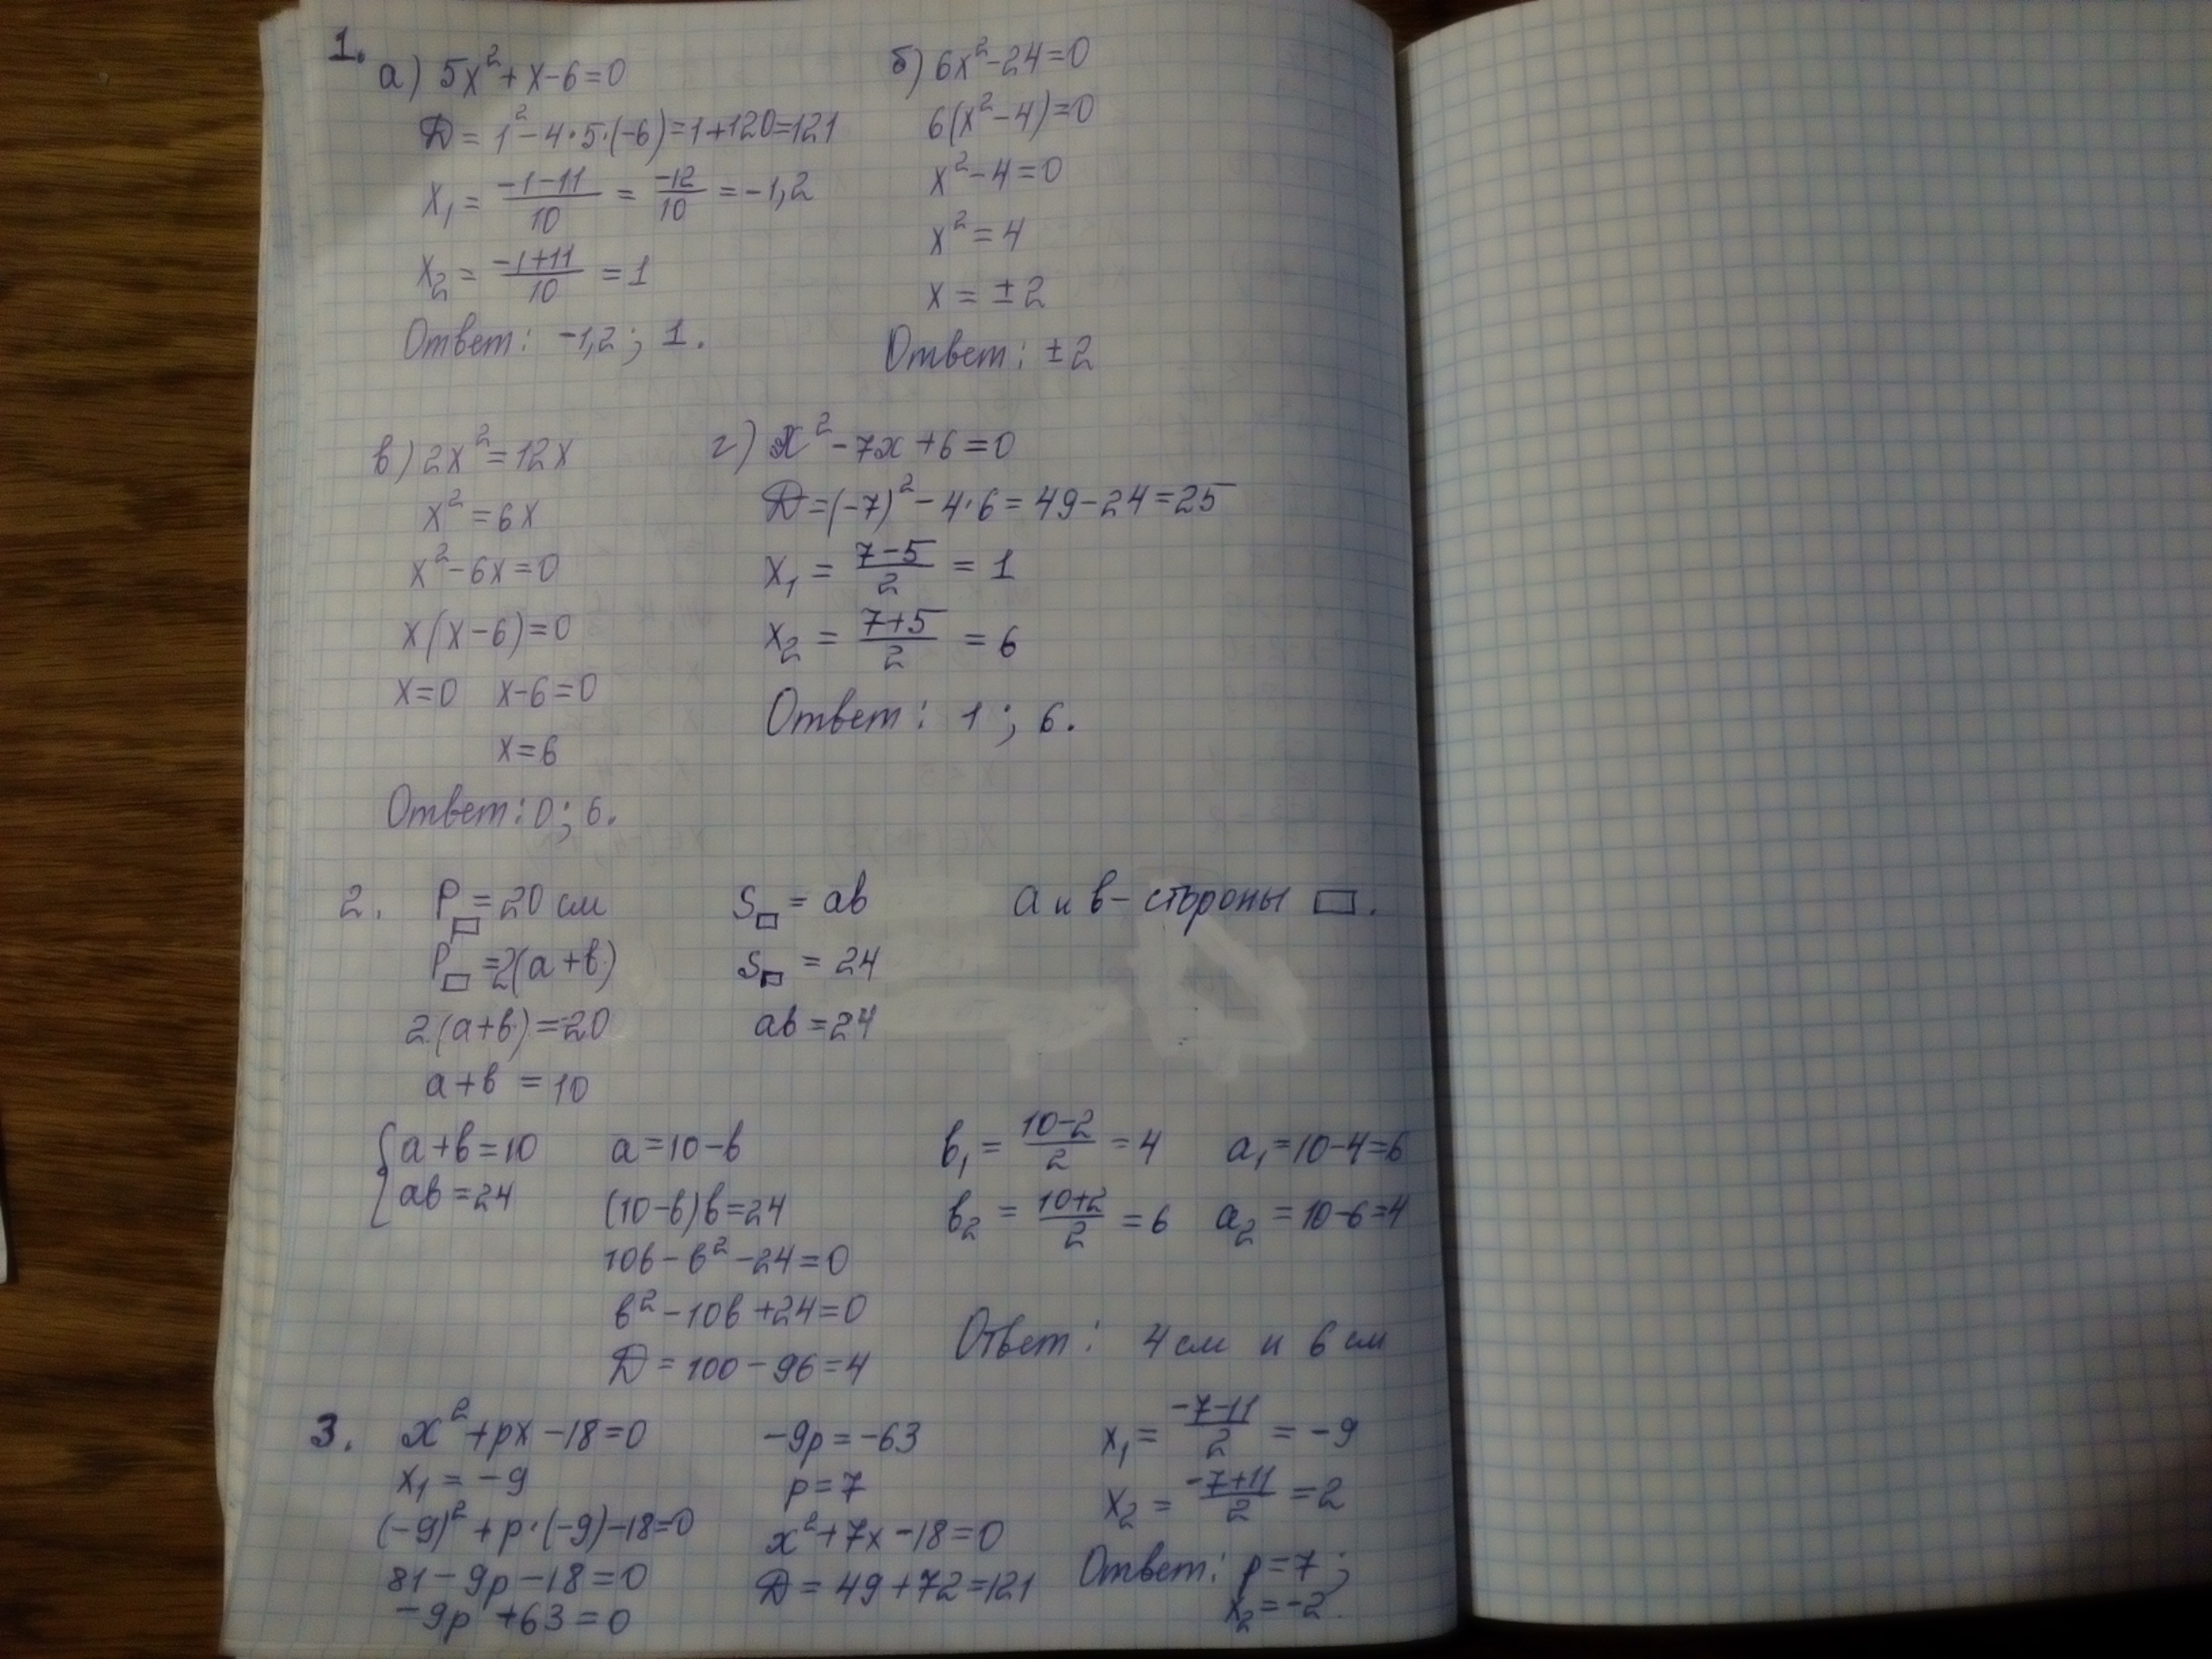 1.
а) 5x² + x - 6 = 0
D = 1² - 4·5·(-6) = 1 + 120 = 121
x₁ = (-1-11)/10 = -12/10 = -1,2
x₂ = (-1+11)/10 = 1
Ответ: -1,2; 1.
б) 6x² - 24 = 0
6(x² - 4) = 0
x² - 4 = 0
x² = 4
x = ±2
Ответ: ±2
в) 2x² = 12x
x² = 6x
x² - 6x = 0
x(x - 6) = 0
x = 0 x - 6 = 0
x = 6
Ответ: 0; 6.
г) x² - 7x + 6 = 0
D = (-7)² - 4·6 = 49 - 24 = 25
x₁ = (7-5)/2 = 1
x₂ = (7+5)/2 = 6
Ответ: 1; 6.
2. P▭ = 20 см
P▭ = 2(a + b)
2(a + b) = 20
a + b = 10
S▭ = ab
S▭ = 24
ab = 24
a и b - стороны ▭.
{a + b = 10
ab = 24
a = 10 - b
(10 - b)b = 24
10b - b² - 24 = 0
b² - 10b + 24 = 0
D = 100 - 96 = 4
b₁ = (10-2)/2 = 4 a₁ = 10 - 4 = 6
b₂ = (10+2)/2 = 6 a₂ = 10 - 6 = 4
Ответ: 4 см и 6 см
3. x² + px - 18 = 0
x₁ = -9
(-9)² + p·(-9) - 18 = 0
81 - 9p - 18 = 0
-9p + 63 = 0
-9p = -63
p = 7
x² + 7x - 18 = 0
D = 49 + 72 = 121
x₁ = (-7-11)/2 = -9
x₂ = (-7+11)/2 = 2
Ответ: p = 7;
x₂ = -2.